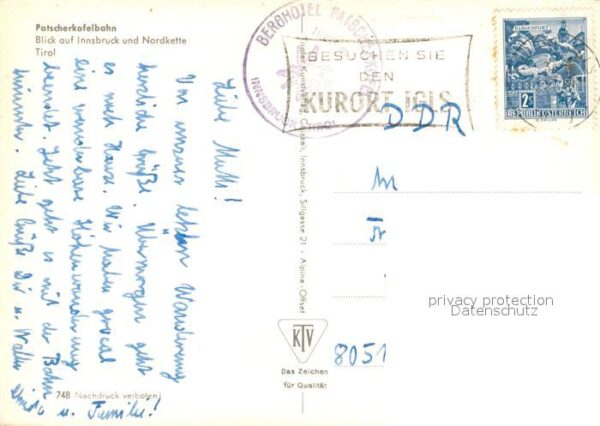 Patscherkofelbahn
Blick auf Innsbruck und Nordkette
Tirol
BERGHOTEL PATSCHERKOFEL
INNSBRUCK TIROL
BESUCHEN SIE
DEN
KURORT IGLS
KLAGENFURT
2S
REPUBLIK ÖSTERREICH
DDR
Liebe Mutti!
Von unserer letzten Wanderung
herzliche Grüße. Übermorgen geht
es nach Hause. Wir haben grad
eine wunderbare Höhenwanderung
beendet. Jetzt geht es mit der Bahn
hinunter. Liebe Grüße Dir u. Walter
u. Familie!
Innsbruck, Sillgasse 21 - Alpina-Offset
privacy protection
Datenschutz
KTV
8051
Das Zeichen
für Qualität
748 Nachdruck verboten!